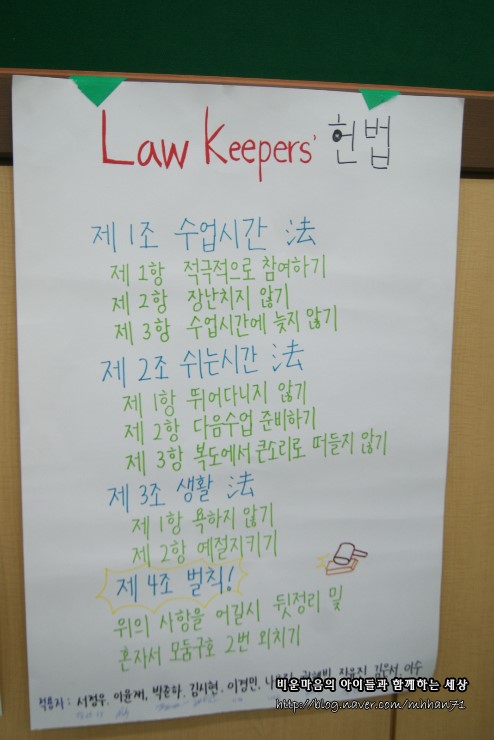 Law Keepers' 헌법
제 1조 수업시간 法
제 1항 적극적으로 참여하기
제 2항 장난치지 않기
제 3항 수업시간에 늦지 않기
제 2조 쉬는시간 法
제 1항 뛰어다니지 않기
제 2항 다음수업 준비하기
제 3항 복도에서 큰소리로 떠들지 않기
제 3조 생활 法
제 1항 욕하지 않기
제 2항 예절지키기
제 4조 벌칙!
위의 사항을 어길시 뒷정리 및
혼자서 모둠구호 2번 외치기
서정우, 이윤재, 김시현, 이경민,
비운마음의 아이들과 함께하는 세상
http://blog.naver.com/mhhan71